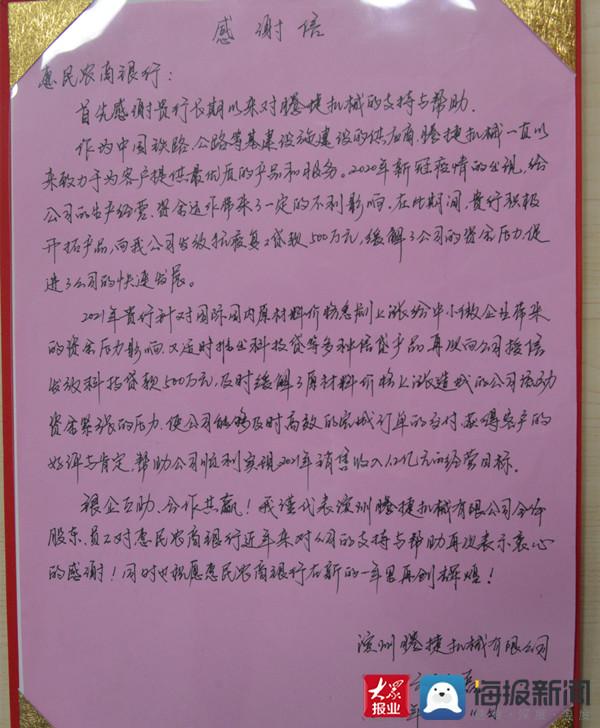 感谢信
惠民农商银行：
首先感谢贵行长期以来对腾捷机械的支持与帮助.
作为中国铁路、公路等基建设施建设的供应商,腾捷机械一直以
来致力于为客户提供最优质的产品和服务。2020年新冠疫情的出现,给
公司的生产经营、资金运作带来了一定的不利影响,在此期间,贵行积极
开拓产品,向我公司发放抗疫复工贷款500万元,缓解了公司的资金压力,促
进了公司的快速发展。
2021年贵行针对国际国内原材料价格急剧上涨给中小微企业带来
的资金压力影响,又适时推出科技贷等多种信贷产品,再次向公司授信
发放科技贷款500万元,及时缓解了原材料价格上涨造成的公司流动
资金紧张的压力,使公司能够及时高效的完成订单的交付,获得客户的
好评与肯定,帮助公司顺利实现2021年销售收入1.2亿元的经营目标.
银企互助、合作共赢！我谨代表滨州腾捷机械有限公司全体
股东、员工对惠民农商银行近年来对公司的支持与帮助再次表示衷心
的感谢！同时也祝愿惠民农商银行在新的一年里再创辉煌！
滨州腾捷机械有限公司
年 月
大众报业 海报新闻